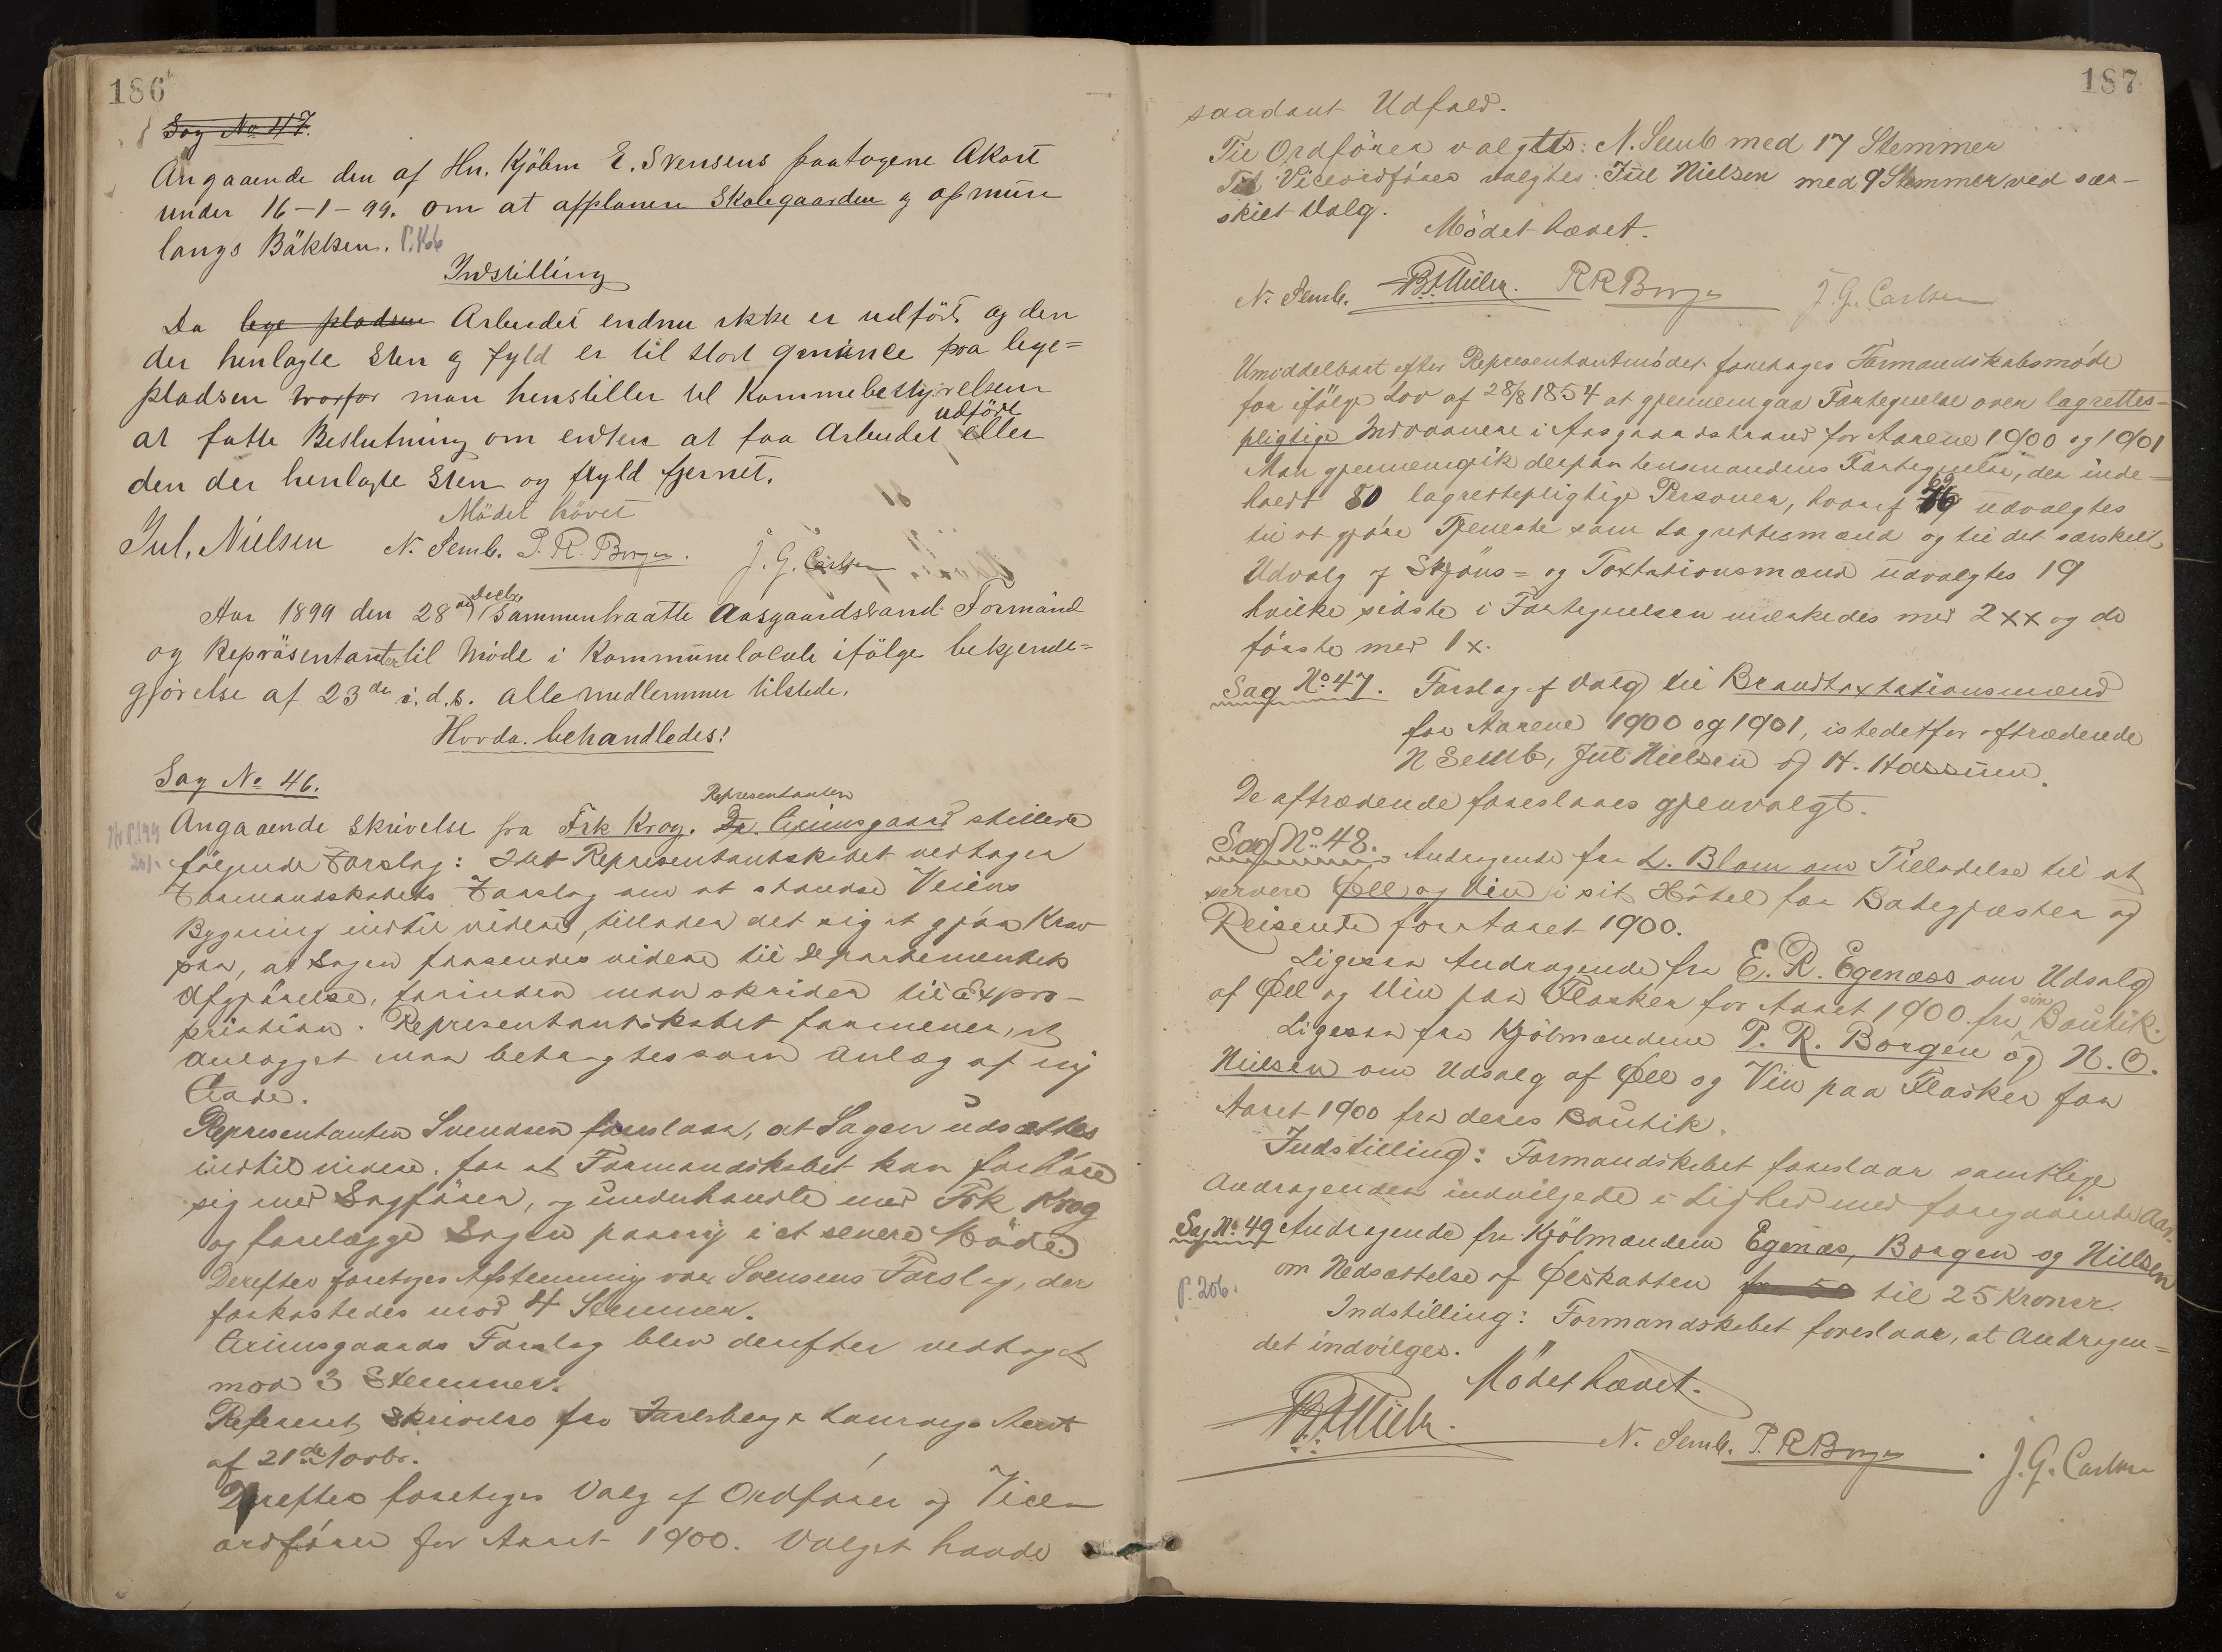 186
Sag No 47.
Angaaende den af Hn. Kjöbm E. Svensens paatagene Akort
under 16-1-99. om at afplanere Skolegaarden og opmure
langs Bäkken.
Indstilling
Da lege pladsen Arbeidet endnu ikke er udfört og den
der henlagte Sten og fyld er til stort paa lege=
pladsen hvorfor man henstiller til Kommebestyrelsen
at fatte Beslutning om endten at faa Arbeidet udfört eller
den der henlagte Sten og fyld fjernet.
Mödet hävet
Jul. Nielsen N. Semb. P. R. Borgen. J. G. Carlsen
Aar 1899 den 28de Decbr Sammentraatte Aasgaardstrand Formænd
og Repräsentanter til Möde i Kommunelokale ifölge bekjendt=
gjörelse af 23de i.d.s. alle medlemmer tilstede.
Hvorda. behandledes:
Sag No 46.
Angaaende Skrivelse fra Frk Krog. Representanten Grimsgaard stillede
følgende Forslag: Idet Representantskabet vedtager
Formandskabets Forslag om at standse Veiens
Bygning indtil videre, tillader det sig at gjøre Krav
paa, at Sagen forsendes videre til Departementets
Afgjørelse, forinden man skrider til Expro-
priation. Representantskabet formener, at
anlægget maa betragtes som Anlæg af ny
Gade.
Representanten Svendsen foreslaar, at Sagen udsættes
indtil videre, for at Formandskabet kan forhøre
sig med Sagfører, og underhandle med Frk Krog
og forelægge Sagen paany i et senere Møde.
Derefter foretoges Afstemning over Svensens Forslag, der
forkastedes mod 4 Stemmer.
Grimsgaards Forslag blev derefter vedtaget
mod 3 Stemmer.
Referert Skrivelse fra Jarlsberg & Laurvigs Amt
af 21de Novbr.
Derefter foretoges Valg af Ordfører og Vice-
ordfører for Aaret 1900. Valget havde
187
saadant Udfald.
Til Ordförer valgtes: N. Semb med 17 Stemmer
Til Viceordförer valgtes Jul Nielsen med 9 Stemmer ved sær-
skilt Valg.
Mödet hævet.
N. Semb. P R Borgen J. G. Carlsen
Umiddelbart efter Representantmödet foretages Formandskabsmöde
for ifölge Lov af 28/8 1854 at gjennemgaa Fortegnelse over lagrettes-
pligtige Indvaanere i Aasgaardstrand for Aarene 1900 og 1901
Man gjennemgik derpaa lensmandens Fortegnelse, der inde-
holdt 80 lagrettepligtige Personer, hvoraf udvalgtes
til at gjøre Tjeneste som Lagrettesmænd og til det særskilt
Udvalg af Skjöns= og Taxtationsmænd udvalgtes 19
hvilke sidste i Fortegnelsen mærkedes med 2 xx og de
förste med 1 x.
Sag No 47. Forslag af Valg til Brandtaxtationsmænd
for Aarene 1900 og 1901, istedetfor aftrædende
N Semb, Jul Nielsen og H. Hassum.
De aftrædende foreslaaes gjenvalgt.
Sag No 48. Andragende fra L. Blom om Tilladelse til at
servere Øll og Vin i sit Hôtel for Badegjæster og
Reisende for Aaret 1900.
Ligesaa Andragende fra E. R. Egenæss om Udsalg
af Øll og Vin paa Flasker for Aaret 1900 fra sin Boutik.
Ligesaa fra Kjöbmændene P. R. Borgen og N. O.
Nielsen om Udsalg af Øll og Vin paa Flasker for
Aaret 1900 fra deres Boutik.
Indstilling: Formandskabet foreslaar samtlige
Andragender indvilgede i Lighed med foregaaende Aar.
Sag No 49 Andragende fra Kjöbmændene Egenæs, Borgen og Nielsen
om Nedsættelse af Ølskatten fra 50 til 25 Kroner.
P. 206.
Indstilling: Formandskabet foreslaar, at Andragen=
det indvilges.
Mødet hævet.
N. Semb. P. R Borgen J. G. Carlsen